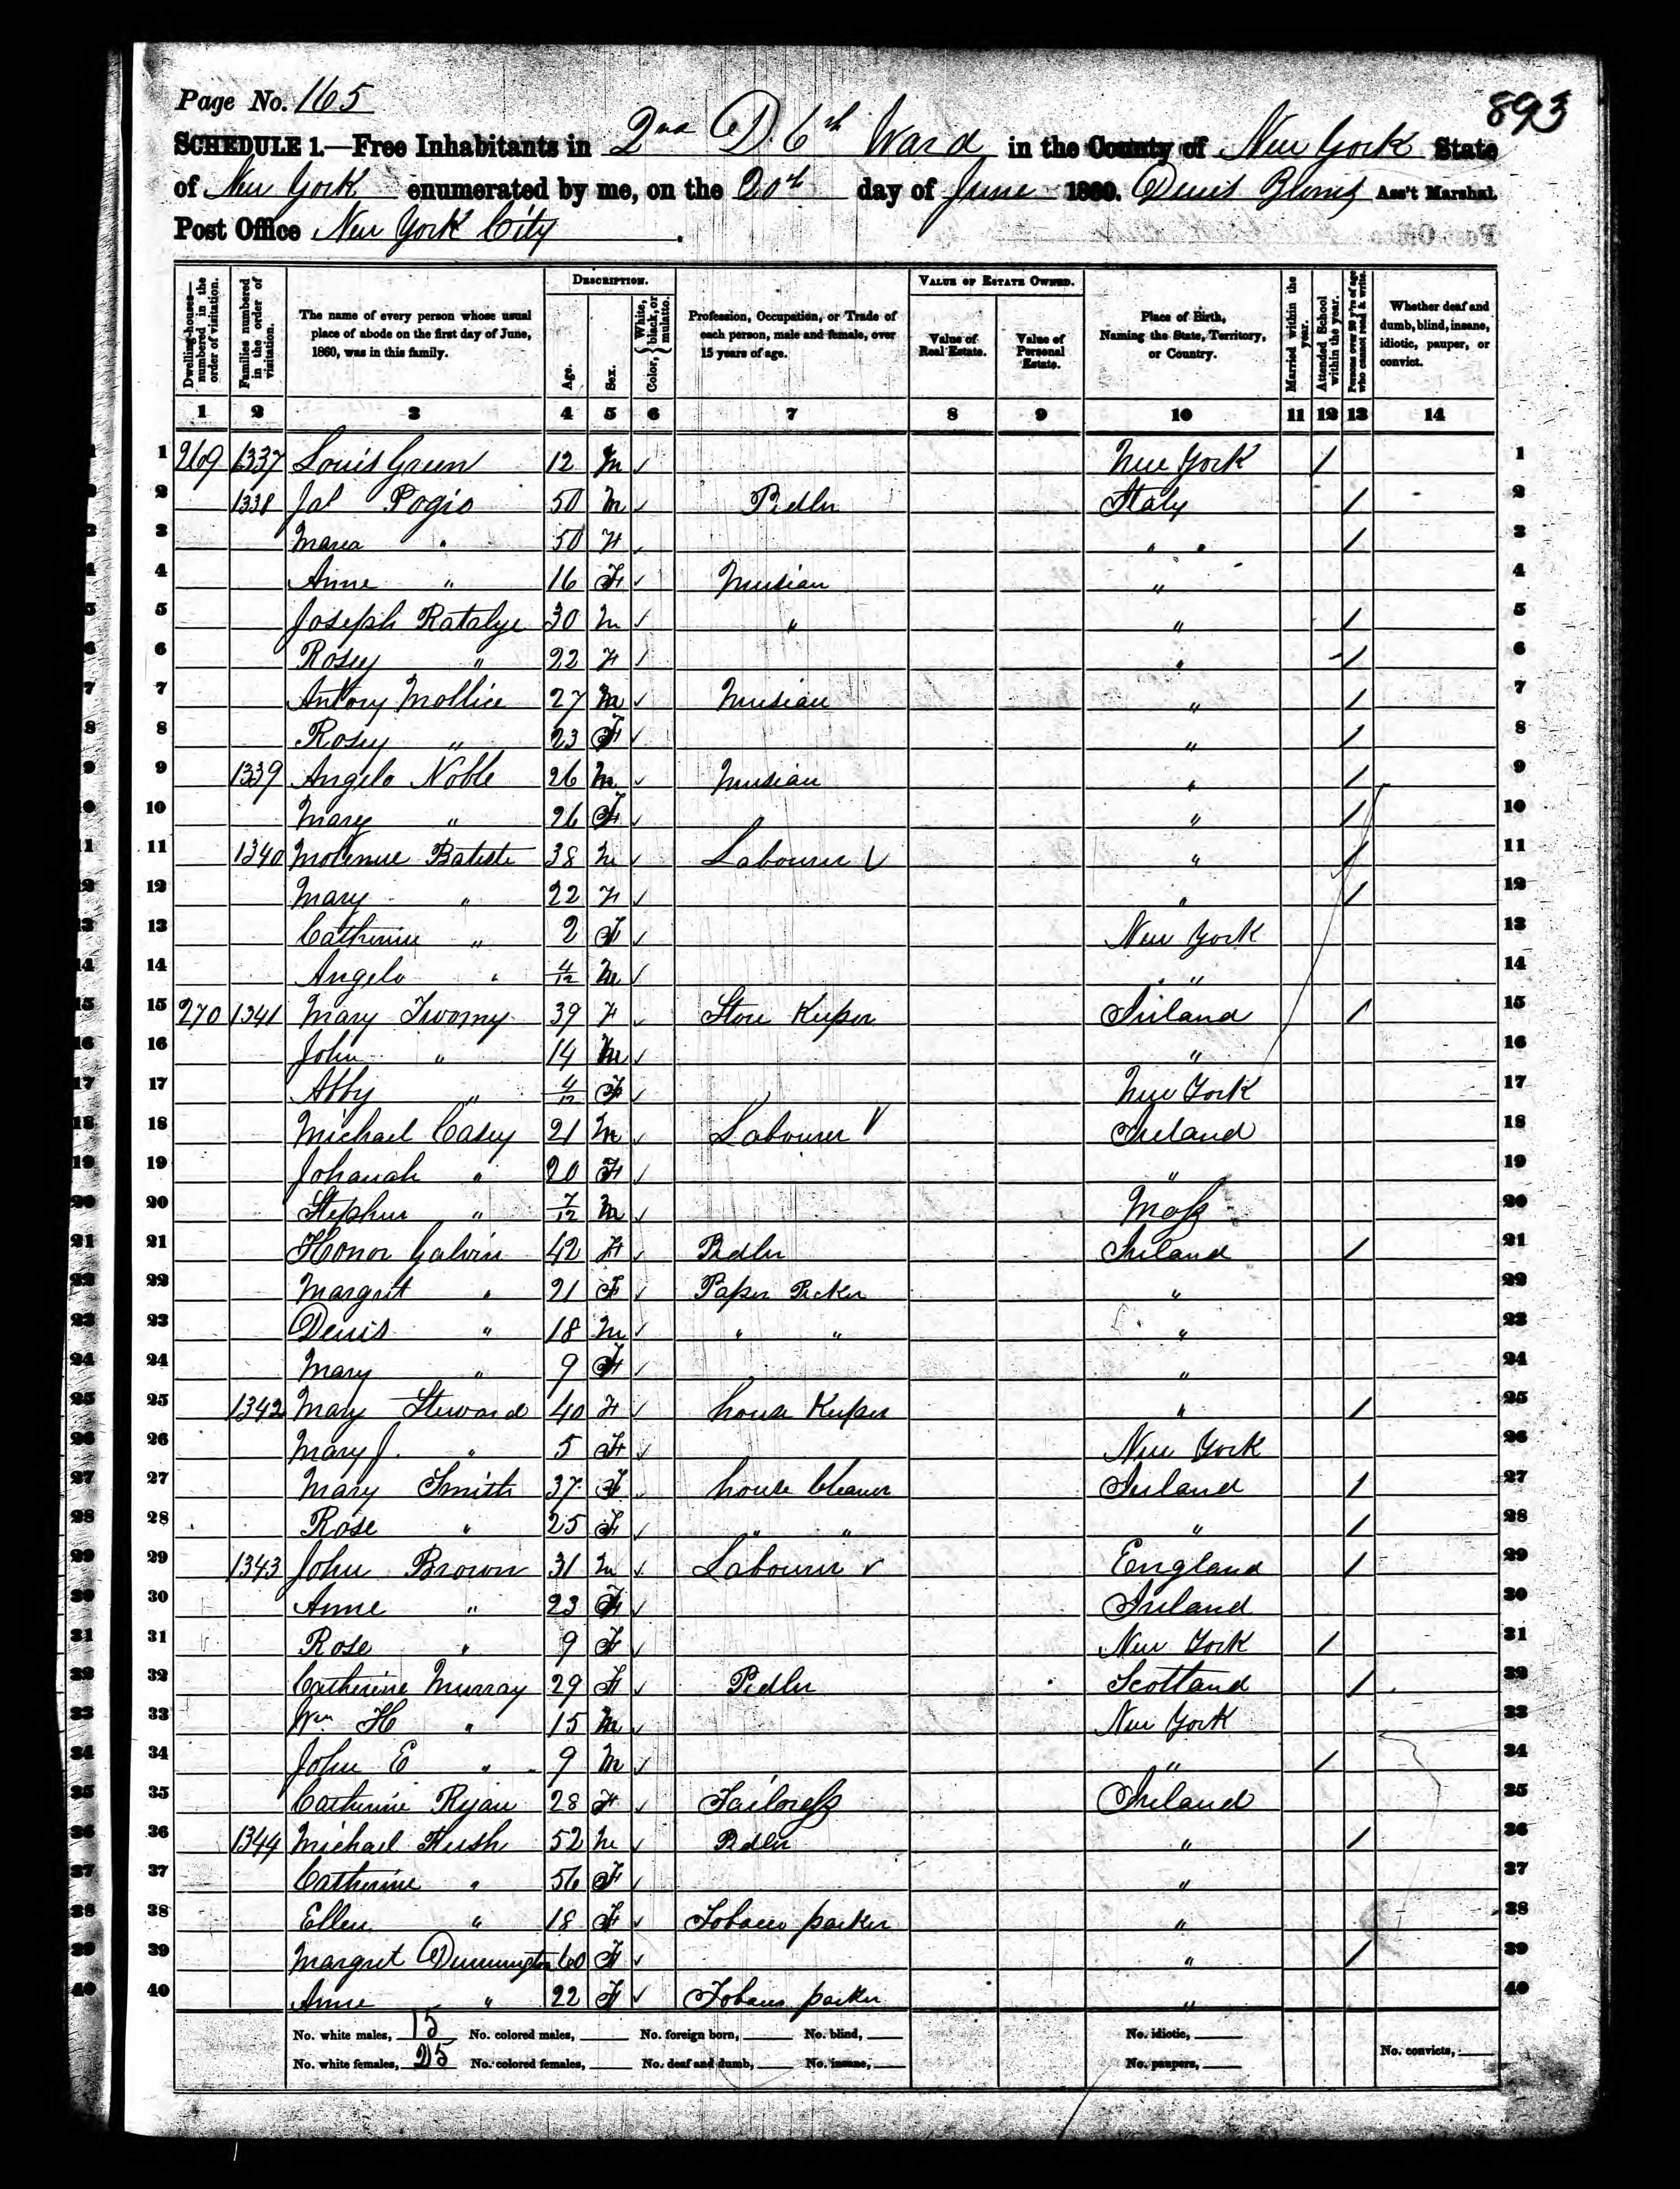 893
Page No. 165
SCHEDULE 1.—Free Inhabitants in 2nd D 6th Ward in the County of New York State
of New York enumerated by me, on the 20th day of June 1860. Ass't Marshal.
Post Office New York City.
Dwelling-houses—numbered in the order of visitation.
Families numbered in the order of visitation.
The name of every person whose usual place of abode on the first day of June, 1860, was in this family.
Description.
Age.
Sex.
Color, { White, black, or mulatto.
Profession, Occupation, or Trade of each person, male and female, over 15 years of age.
Value of Estate Owned.
Value of Real Estate.
Value of Personal Estate.
Place of Birth, Naming the State, Territory, or Country.
Married within the year.
Attended School within the year.
Persons over 20 y'rs of age who cannot read & write.
Whether deaf and dumb, blind, insane, idiotic, pauper, or convict.
1 2 3 4 5 6 7 8 9 10 11 12 13 14
1 269 1337 Louis Green 12 M ✓ New York / 1
2 1338 Jas Pogio 50 M ✓ Pedler Italy / 2
3 Maria " 50 F ✓ " " / 3
4 Anne " 16 F ✓ Musian " 4
5 Joseph Ratalye 30 M ✓ " " / 5
6 Rosey " 22 F ✓ " / 6
7 Antony Mollice 27 M ✓ Musian " / 7
8 Rosey " 23 F ✓ " / 8
9 1339 Angelo Noble 26 M ✓ Musian " / 9
10 Mary " 26 F ✓ " / 10
11 1340 Batiste 38 M ✓ Labourer ✓ " / 11
12 Mary " 22 F ✓ " / 12
13 Catherine " 2 F ✓ New York 13
14 Angelo " 4/12 M ✓ " 14
15 270 1341 Mary Twomy 39 F ✓ Store Keeper Ireland / 15
16 John " 14 M ✓ " 16
17 Abby " 4/12 F ✓ New York 17
18 Michael Casey 21 M ✓ Labourer ✓ Ireland 18
19 Johanah " 20 F ✓ " 19
20 Stephen " 7/12 M ✓ Mass 20
21 Honor Galvin 42 F ✓ Pedler Ireland / 21
22 Margret " 21 F ✓ Paper Picker " 22
23 Denis " 18 M ✓ " " " 23
24 Mary " 9 F ✓ " 24
25 1342 Mary Steward 40 F ✓ house Keeper " / 25
26 Mary J. " 5 F ✓ New York 26
27 Mary Smith 37 F ✓ house Cleaner Ireland / 27
28 Rose " 25 F ✓ " " " / 28
29 1343 John Brown 31 M ✓ Labourer ✓ England / 29
30 Anne " 23 F ✓ Ireland 30
31 Rose " 9 F ✓ New York / 31
32 Catherine Murray 29 F ✓ Pedler Scotland / 32
33 Wm H " 15 M ✓ New York 33
34 John E " 9 M ✓ " / 34
35 Catherine Ryan 28 F ✓ Tailoress Ireland 35
36 1344 Michael 52 M ✓ Pedler " / 36
37 Catherine " 56 F ✓ " 37
38 Ellen " 18 F ✓ Tobacco packer " 38
39 Margret 60 F ✓ " / 39
40 Anne " 22 F ✓ Tobacco packer " 40
No. white males, 15 No. colored males, No. foreign born, No. blind, No. idiotic,
No. white females, 25 No. colored females, No. deaf and dumb, No. insane, No. paupers, No. convicts,